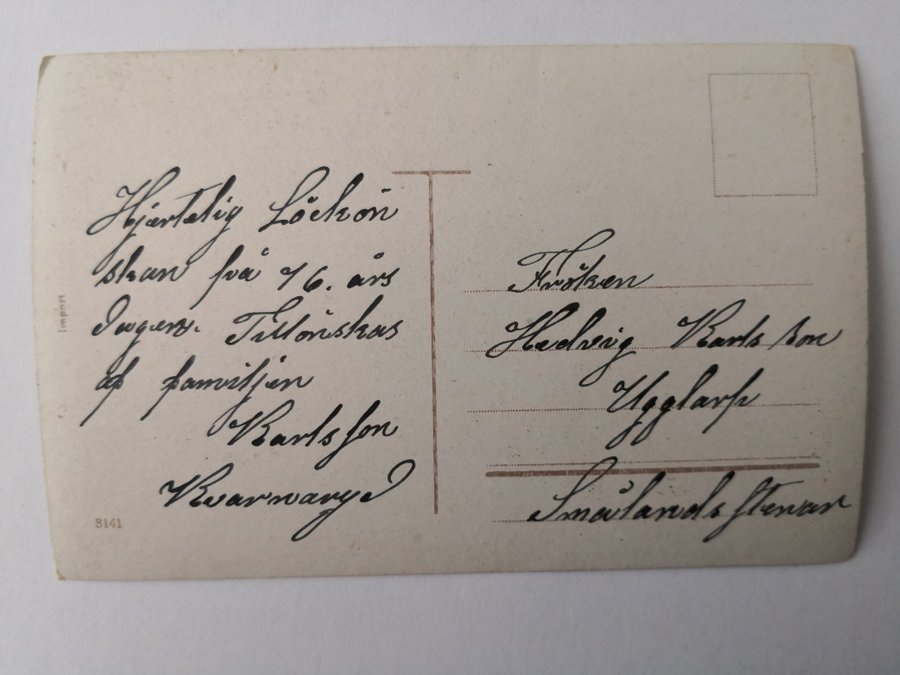 Hjertelig Löckön
skan på 16. års
dagen. Tillönskas
af familjen
Karlsson
Kvarnaryd
Import
3141
Fröken
Hedvig Karlsson
Ugglarp
Smålandsstenar